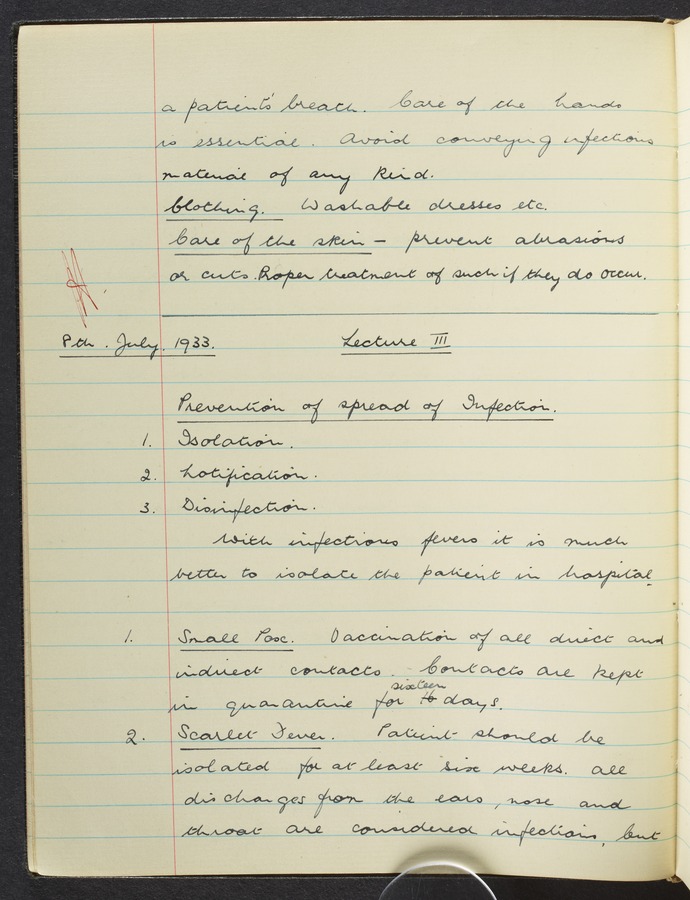 a patient's breath. Care of the hands
is essential. Avoid conveying infectious
material of any kind.
Clothing. Washable dresses etc.
Care of the skin – prevent abrasions
or cuts. Proper treatment of such if they do occur.
8th. July. 1933. Lecture III
Prevention of spread of Infection.
1. Isolation.
2. Notification.
3. Disinfection.
With infectious fevers it is much
better to isolate the patient in hospital.
1. Small Pox. Vaccination of all direct and
indirect contacts. Contacts are kept
sixteen
in quarantine for 16 days.
2. Scarlet Fever. Patient should be
isolated for at least six weeks. All
discharges from the ears, nose and
throat are considered infectious, but